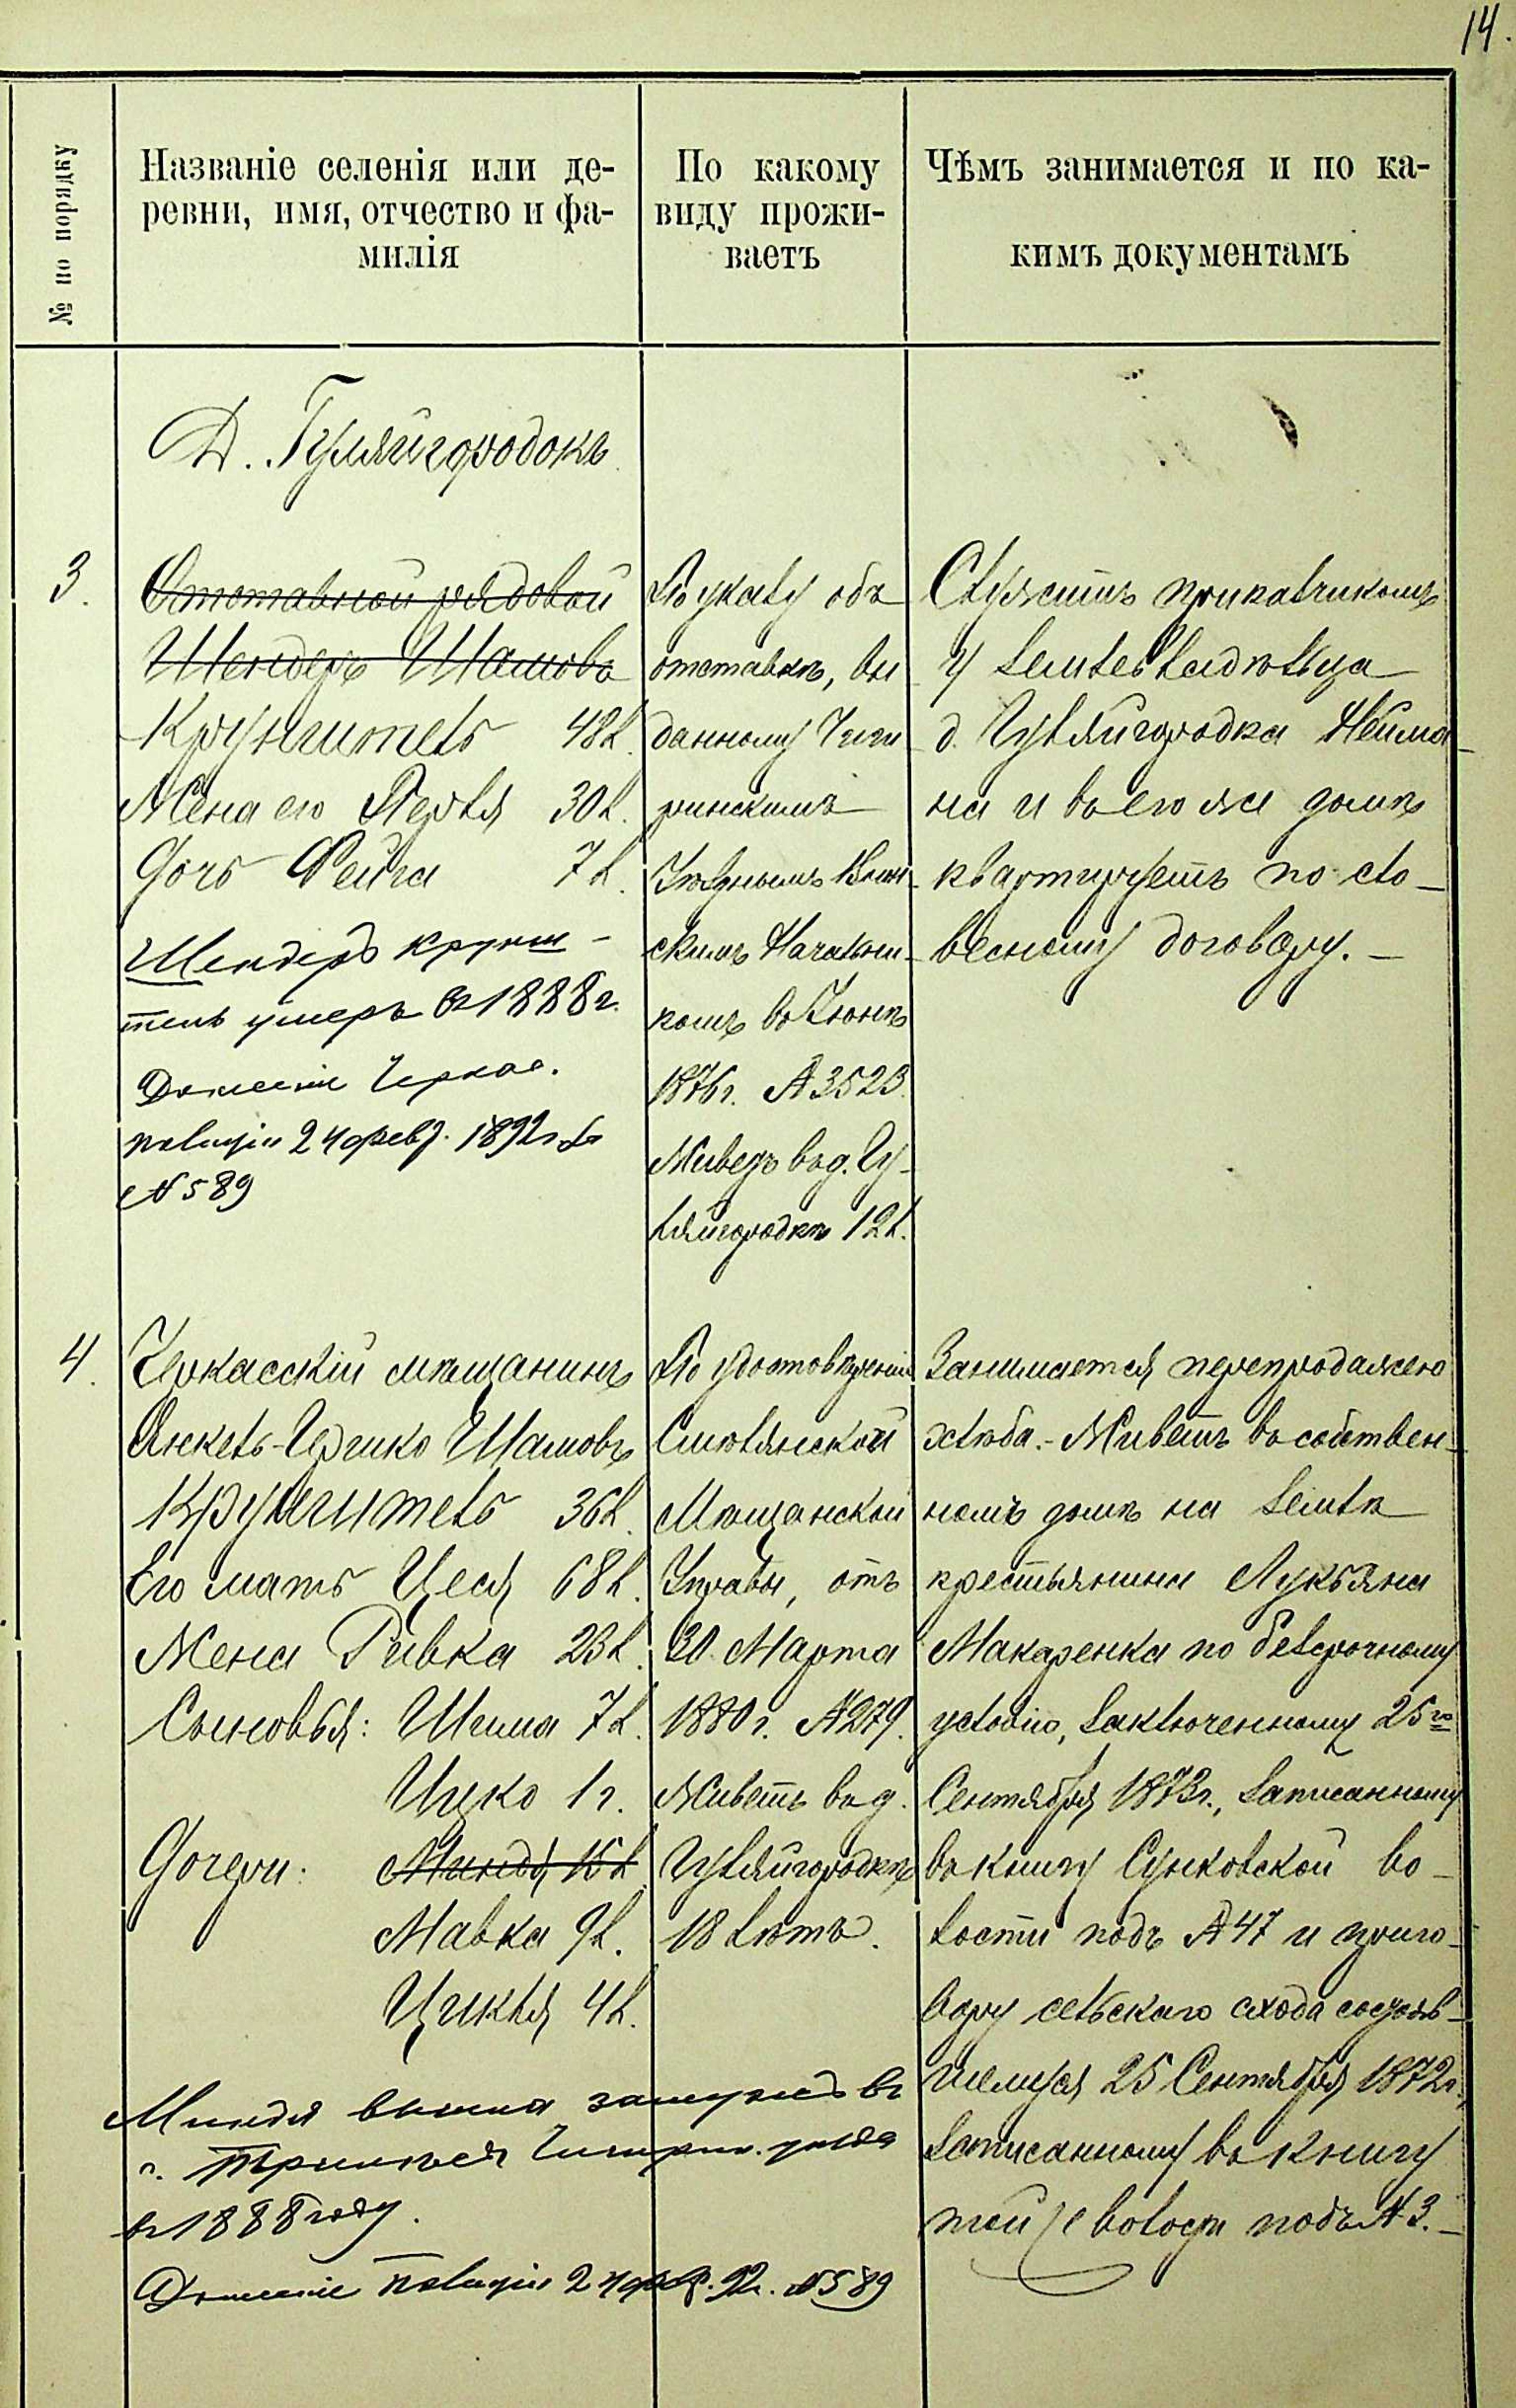 14.
№ по порядку
Названіе селенія или де-
ревни, имя, отчество и фа-
милія
По какому
виду прожи-
ваетъ
Чѣмъ занимается и по ка-
кимъ документамъ
Д. Гуляйгородокъ
3.
Отставной рядовой
Шендеръ Шамовъ
Крунгитель 48 л.
Жена его Перля 30 л.
Дочь Фейга 7 л.
Шендеръ Крунги-
тель умеръ въ 1888 г.
Донесеніе Черкас.
полиціи 24 февр. 1892 г. за
№ 589
По указу объ
отставкѣ, вы
данному Чиги
ринскимъ
Уѣзднымъ Воин-
скимъ Начальни-
комъ въ Іюнѣ
1876 г. № 3523.
Живетъ въ д. Гу-
ляйгородкѣ 12 л.
Служитъ прикащикомъ
у землевладѣльца
д. Гуляйгородка Нейма-
на и въ его же домѣ
квартируетъ по сло-
весному договору. —
4.
Черкасскій мѣщанинъ
Анкель-Гершко Шамовъ
Крунгитель 36 л.
Его мать Цеся 68 л.
Жена Ривка 23 л.
Сыновья: Шима 7 л.
Ицко 1 г.
Дочери: Миндя 15 л.
Мавка 9 л.
Цикля 4 л.
Миндя вышла замужъ въ
с. Чигирин. уѣзда
въ 1888 году.
Донесеніе полиціи 24 фев. 92 г. № 589
По удостовѣренію
Смѣлянской
Мѣщанской
Управы, отъ
30 Марта
1880 г. № 279.
Живетъ въ д.
Гуляйгородкѣ
18 лѣтъ.
Занимается перепродажею
хлѣба. - Живетъ въ собствен-
номъ домѣ на землѣ
крестьянина Лукьяна
Макаренка по безсрочному
условію, заключенному 25го
Сентября 1873 г., записанному
въ книгу Сунковской во-
лости подъ № 47 и приго-
вору сельскаго схода состояв-
шемуся 25 Сентября 1872 г.,
записанному въ книгу
той же волости подъ № 3. —